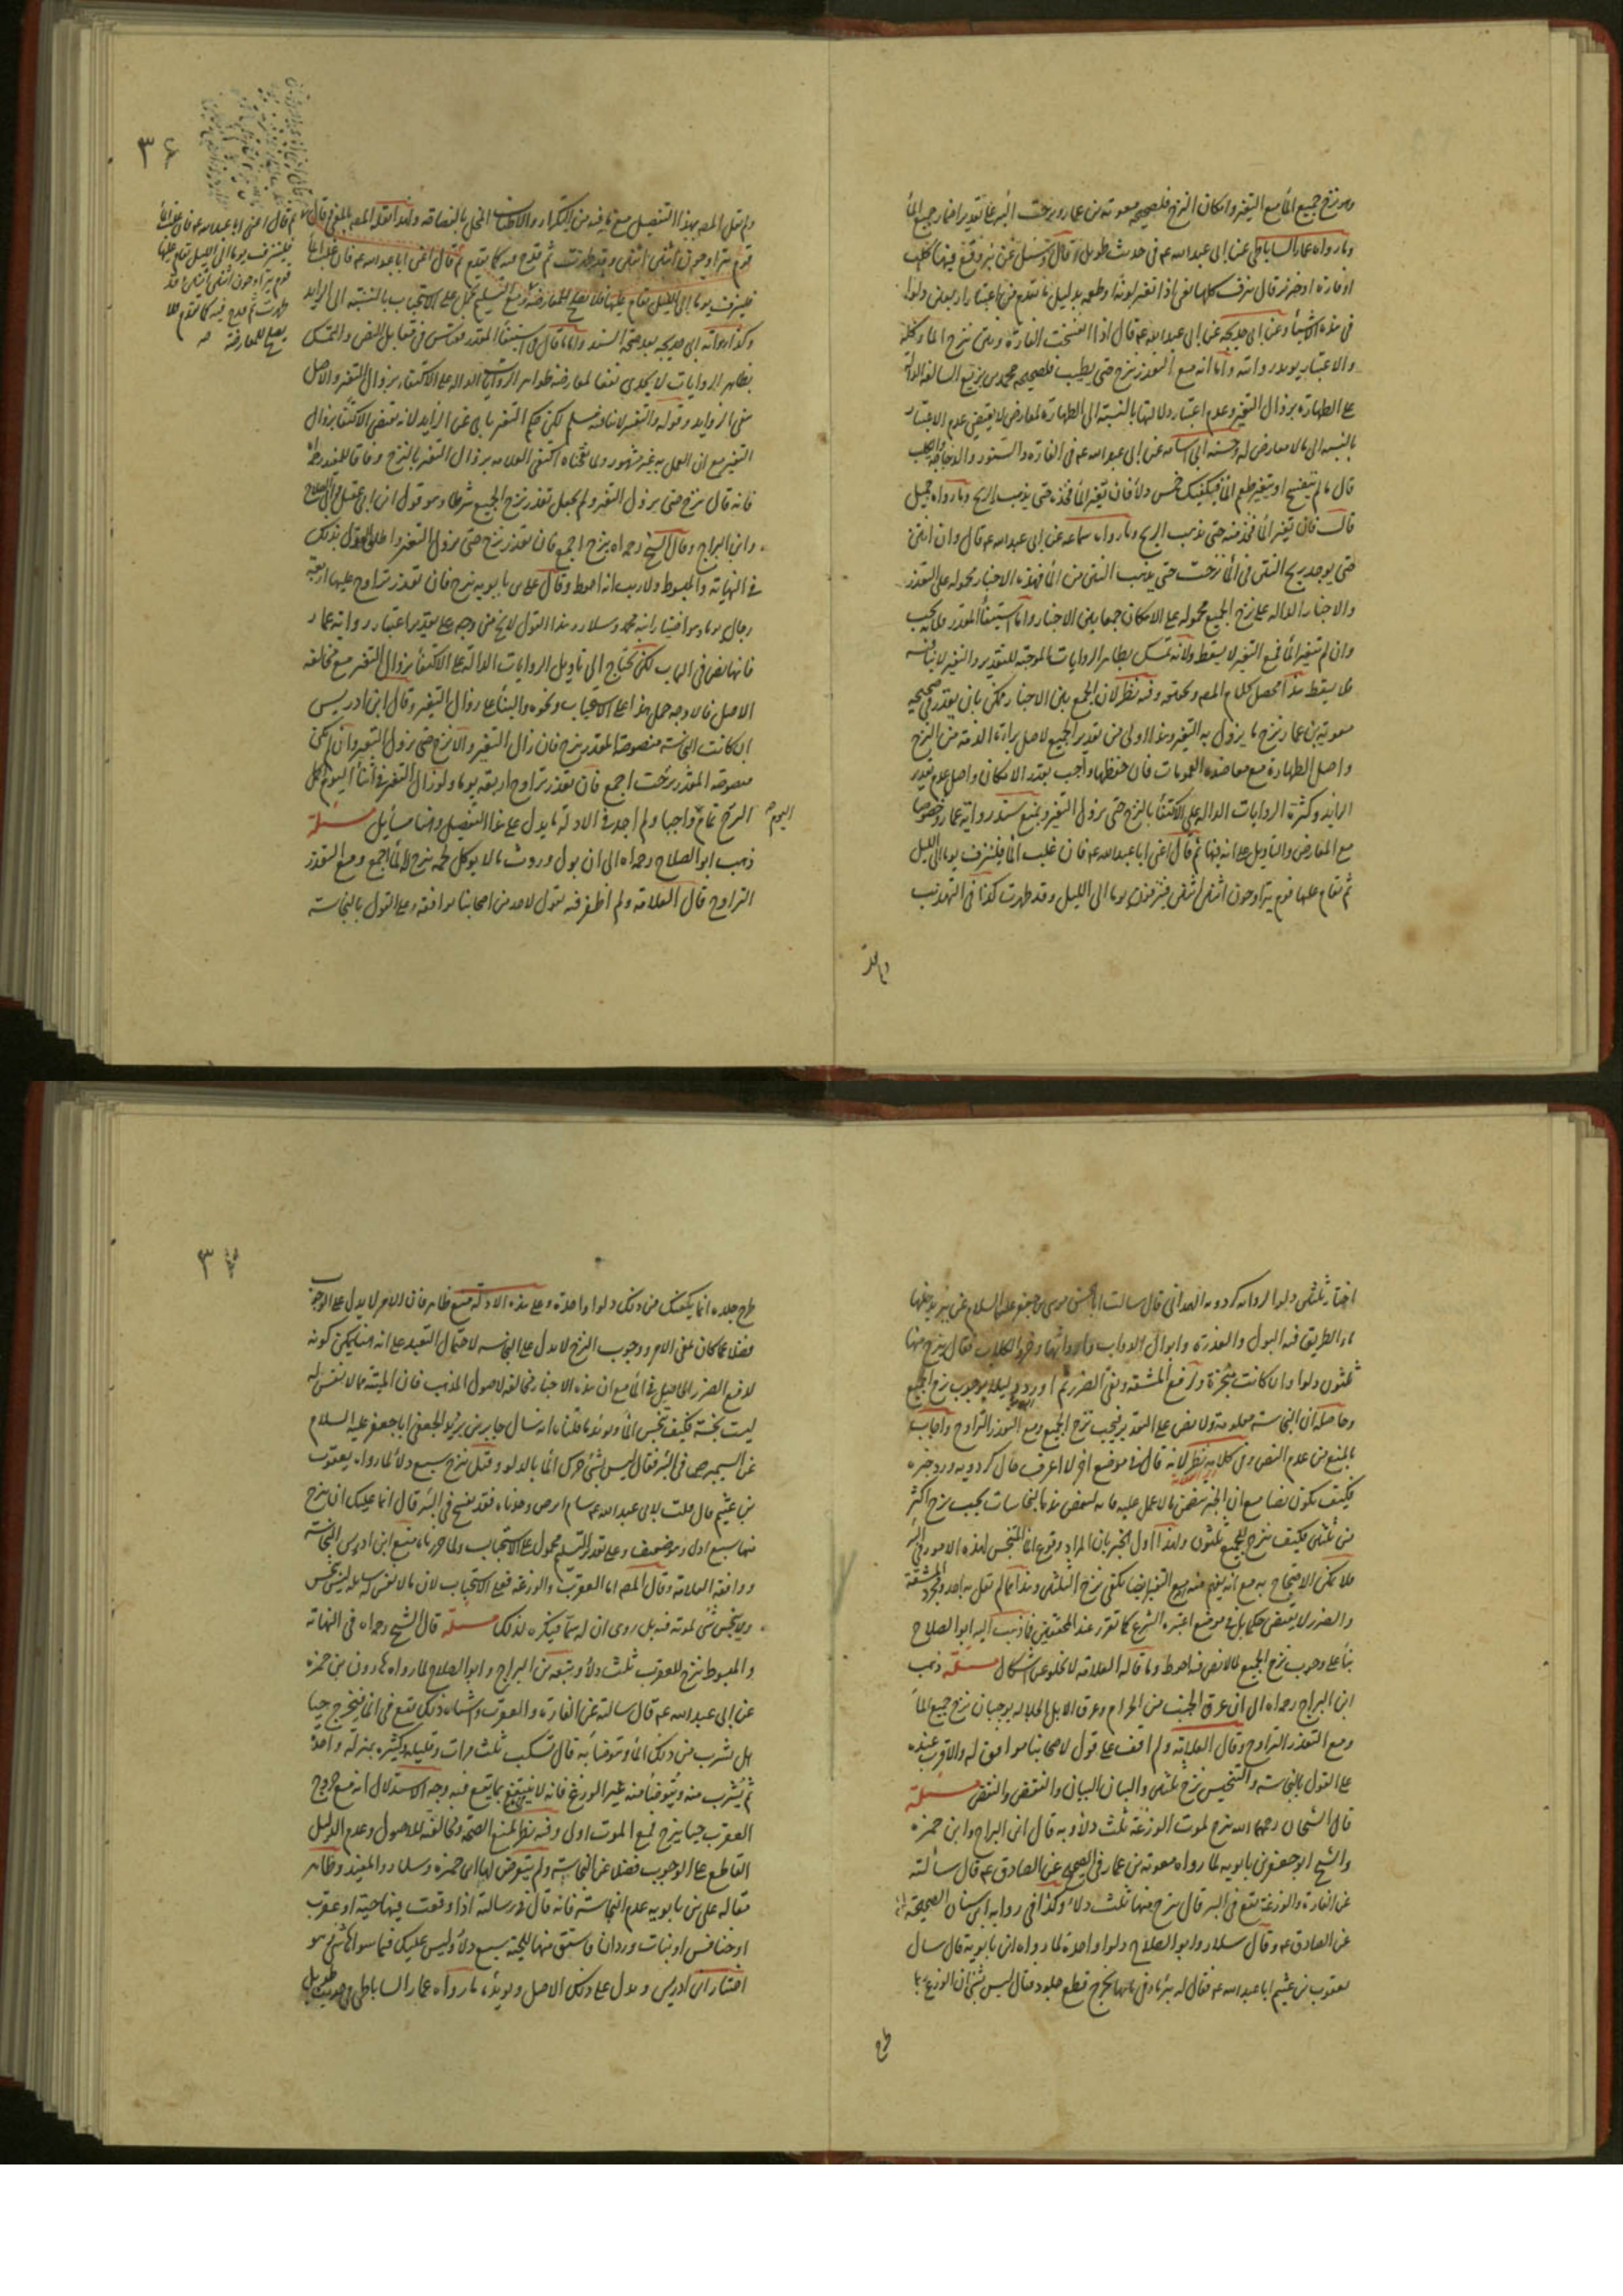 وهو نزح جميع الماء مع التغير وامكان النزح فلصحيحه معوية بن عمار ونزحت البئر على تقدير اخبار جميع الماء
وما رواه عمار الساباطي عن ابي عبدالله ع في حديث طويل قال وسئل عن بئر وقع فيها كلب
او فارة او خنزير قال تنزف كلها يعني اذا تغير لونه او طعمه بدليل ما تقدم من اعتبار اربعين دلوا
في هذه الاشياء وعن ابي خديجه عن ابي عبدالله ع قال اذا انتفخت الفارة ونتن نزح الماء كله
والاعتبار يويد روايته واما انه مع التعذر ينزح حتى يطيب فلصحيحه محمد بن بزيع السالفة الدالة
على الطهارة بزوال التغير وعدم اعتبار دلالتها بالنسبة الى الطهارة لمعارض لا يقتضي عدم الاعتبار
بالنسبه الى ما لا معارض له وحسنه ابي اسامه عن ابي عبدالله ع في الفارة والسنور والدجاجه والكلب
قال ما لم يتفسخ او يتغير طعم الماء فيكفيك خمس دلاء فان تغير الماء فخذه حتى يذهب الريح وما رواه جميل
قال فان تغير الماء فخذ منه حتى يذهب الريح وما رواه سماعه عن ابي عبدالله ع قال وان انتن
حتى يوجد ريح النتن في الماء نزحت حتى يذهب النتن من الماء فهذه الاخبار محموله على التعذر
والاخبار الداله على نزح الجميع محموله على الامكان جمعا بين الاخبار واما استيفاء المقدر فلانه يجب
وان لم يتغير الماء فمع التغير لا يسقط ولانه تمسك بظاهر الروايات الموجبه للتقدير والتغير لا ينافيه
فلا يسقط هذا محصل كلام المصـ وفيه نظر لان الجمع بين الاخبار يمكن بان يقدر في صحيحه
معوية بن عمار نزح ما يزول به التغير وهذا اولى من تقدير الجميع لاصل براءة الذمة من النزح
واصل الطهارة مع معاضده العمومات فان حفظها واجب بقدر الامكان واصل عدم تقدير
الزايد وكثرة الروايات الداله على الاكتفاء بالنزح حتى يزول التغير وبمنع سند رواية عمار وخصوصا
مع المعارض والتاويل على انه فيها ثم قال اعني ابا عبدالله ع فان غلب الماء فلينزف يوما الى الليل
ثم يقام عليها قوم يتراوحون اثنين اثنين فينزفون يوما الى الليل وقد طهرت كذا في التهذيب
٣٦
ولم ينقل المصـ بهذا التفصيل مع ما فيه من التكرار والاطناب المخل بالفصاحه ولهذا نقله المصـ بالمعنى قال
قوم يتراوحون اثنين اثنين وقد طهرت ثم قدح فيه كما تقدم ثم قال اعني ابا عبدالله ع فان غلب الماء
فلينزف يوما الى الليل يقام عليها فلا يصلح للمعارضة ومع التسليم تحمل على الاستحباب بالنسبة الى الزايد
وكذا رواته ابي خديجه بعد صحة السند واما ما قال في استيفاء المقدر فقياس في مقابل النص والتمسك
بظاهر الروايات لا يجدي نفعا لمعارضه ظواهر الروايات الداله على الاكتفاء بزوال التغير والاصل
ينفي الزوايد وقوله والتغير لا ينافيه مسلم لكن حكم التغير يابى عن الزايد لانه يقتضي الاكتفاء بزوال
التغير مع ان العمل به غير مشهور ولما قلناه اكتفى العلامه بزوال التغير بالنزح وفاقا للمفيد ره
فانه قال نزح حتى يزول التغير ولم يجعل تعذر نزح الجميع شرطا وهو قول ابن ابي عقيل وابي الصلاح
وابن البراج وقال الشيخ رحمه الله ينزح اجمع فان تعذر نزح حتى يزول التغير واطلق القول بذلك
في النهاية والمبسوط ولا ريب انه احوط وقال علي بن بابويه ينزح فان تعذر تراوح عليها اربعه
رجال يوما وهو اختيار ابنه محمد وسلار وهذا القول لا يخ من وجه على تقدير اعتبار رواية عمار
فانها نص في الباب لكن تحتاج الى تاويل الروايات الدالة على الاكتفاء بزوال التغير مع مخالفه
الاصل فالاوجه حمل هذا على الاستحباب ونحوه والبناء على زوال التغير وقال ابن ادريس
ان كانت النجاسة منصوصة المقدر نزح فان زال التغير والا نزح حتى يزول التغير وان لم تكن
منصوصة المقدر نزحت اجمع فان تعذر تراوح اربعه يوما ولو زال التغير في اثناء اليوم اكمل
النزح تمام واجبا ولم اجد في الادلة ما يدل على هذا التفصيل وهنا مسايل مسئلة
ذهب ابو الصلاح رحمه الله الى ان بول وروث ما لا يوكل لحمه ينزح له الماء اجمع ومع التعذر
التراوح قال العلامه ولم اظفر فيه بقول لاحد من اصحابنا يوافقه وعلى القول بالنجاسه
ثم قال اعني ابا عبدالله ع فان غلب الماء
فلينزف يوما الى الليل يقام عليها
قوم يتراوحون اثنين اثنين وقد
طهرت ثم قدح فيه كما تقدم فلا
يصلح للمعارضة صح
اليوم
اختار ثلثين دلوا لروايه كردويه الهمداني قال سالت ابا الحسن موسى بن جعفر عليهما السلام عن بئر يدخلها
ماء الطريق فيه البول والعذرة وابوال الدواب وارواثها وخرء الكلاب فقال ينزح منها
ثلثون دلوا وان كانت مبخرة ورفع المشقه ونفي الضرر ثم اورد دليلا بوجوب نزح الجميع
وحاصله ان النجاسه معلومة ولا نص على التقدير فيجب نزح الجميع ومع التعذر التراوح واجاب
بالمنع من عدم النص وفي كلامه نظر لانه قال في موضع اخر لا اعرف حال كردويه ورد خبره
فكيف يكون نصا مع ان الخبر يتضمن ما لا عمل عليه فانه يتضمن هذه النجاسات يجب نزح اكثر
من ثلثين فكيف ينزح للجميع ثلثون ولهذا اول الخبر بان المراد وقوع الماء المتنجس لهذه الامور في البئر
فلا يمكن الاحتجاج به مع انه يفهم منه مع التغير ايضا يكفي نزح الثلثين وهذا مما لم يقل به احد ومجرد المشقة
والضرر لا يقتضي حكما بل في موضع اعتبره الشرع كما تقرر عند المحققين فاذهب اليه ابو الصلاح
بناء على وجوب نزح الجميع لما لا نص فيه احوط وما قاله العلامه لا يخلو عن اشكال مسئلة ذهب
ابن البراج رحمه الله الى ان عرق الجنب من الحرام وعرق الابل الجلاله يوجبان نزح جميع الماء
ومع التعذر التراوح وقال العلامة ولم اقف على قول لاصحابنا يوافق له والاقرب عنده
على القول بالنجاسة والتنجيس نزح ثلثين والبيان البيان والنقض والنقض مسئلة
قال الشيخان رحمهما الله ينزح لموت الوزغة ثلث دلاء وبه قال ابن البراج وابن حمزه
والشيخ ابو جعفر بن بابويه لما رواه معوية بن عمار في الصحيح عن الصادق ع قال سالته
عن الفارة والوزغة تقع في البئر قال ينزح منها ثلث دلاء وكذا في رواية ابن سنان الصحيحة
عن الصادق ع وقال سلار وابو الصلاح دلوا واحدة لما رواه ابن بابويه قال سال
يعقوب بن عثيم ابا عبدالله ع فقال له بئر ماء في مائها يخرج قطع جلود فقال ليس بشئ ان الوزغ ربما
طرح
٣٧
طرح جلده انما يكفيك من ذلك دلوا واحدة وعلى هذه الادلة منع ظاهر فان الامر لا يدل على الوجوب
فضلا عما كان بمعنى الامر ووجوب النزح لا يدل على النجاسه لاحتمال التعبد على انه هنا يمكن كونه
لدفع الضرر الحاصل في الماء مع ان هذه الاخبار مخالفه لاصول المذهب فان الميتة مما لا نفس له
ليست نجسة فكيف تنجس الماء ويؤيد ما قلناه انه سال جابر بن يزيد الجعفي ابا جعفر عليه السلام
عن السام ابرص في البئر فقال ليس بشئ حرك الماء بالدلو وقيل نزح سبع دلاء لما رواه يعقوب
بن عثيم قال قلت لابي عبدالله ع سام ابرص وجدناه قد تفسخ في البئر قال انما عليك ان تنزح
منها سبع ادل وهو ضعيف وعلى تقدير التسليم محمول على الاستحباب ولما حررناه منع ابن ادريس النجاسة
ووافقه العلامة وقال المصـ اما العقرب والوزغه فعلى الاستحباب لان ما لا نفس له سايله ليس بنجس
ولا ينجس شئ لموته فيه بل روى ان له سما فيكره لذلك مسئلة قال الشيخ رحمه الله في النهاية
والمبسوط ينزح للعقرب ثلث دلاء وتبعه ابن البراج وابو الصلاح لما رواه هارون بن حمزه
عن ابي عبدالله ع قال سالته عن الفارة والعقرب واشباه ذلك يقع في الماء فيخرج حيا
هل يشرب من ذلك الماء ويتوضأ به قال تسكب ثلث مرات وقليله وكثيره بمنزلة واحدة
ثم يشرب منه ويتوضأ منه غير الوزغ فانه لا ينتفع بما يقع فيه وجه الاستدلال انه مع خروج
العقرب حيا ينزح فمع الموت اولى وفيه نظر لمنع الصحة ومخالفته للاصول وعدم الدليل
القاطع على الوجوب فضلا عن النجاسه ولم يتعرض لها ابن حمزه وسلار والمفيد وظاهر
مقاله علي بن بابويه عدم النجاسة فانه قال في رسالته اذا وقعت فيها حية او عقرب
او خنافس او بنات وردان فاستق منها للحية سبع دلاء وليس عليك فيما سواها شئ وهو
اختيار ابن ادريس ويدل على ذلك الاصل ويويده ما رواه عمار الساباطي في حديث طويل